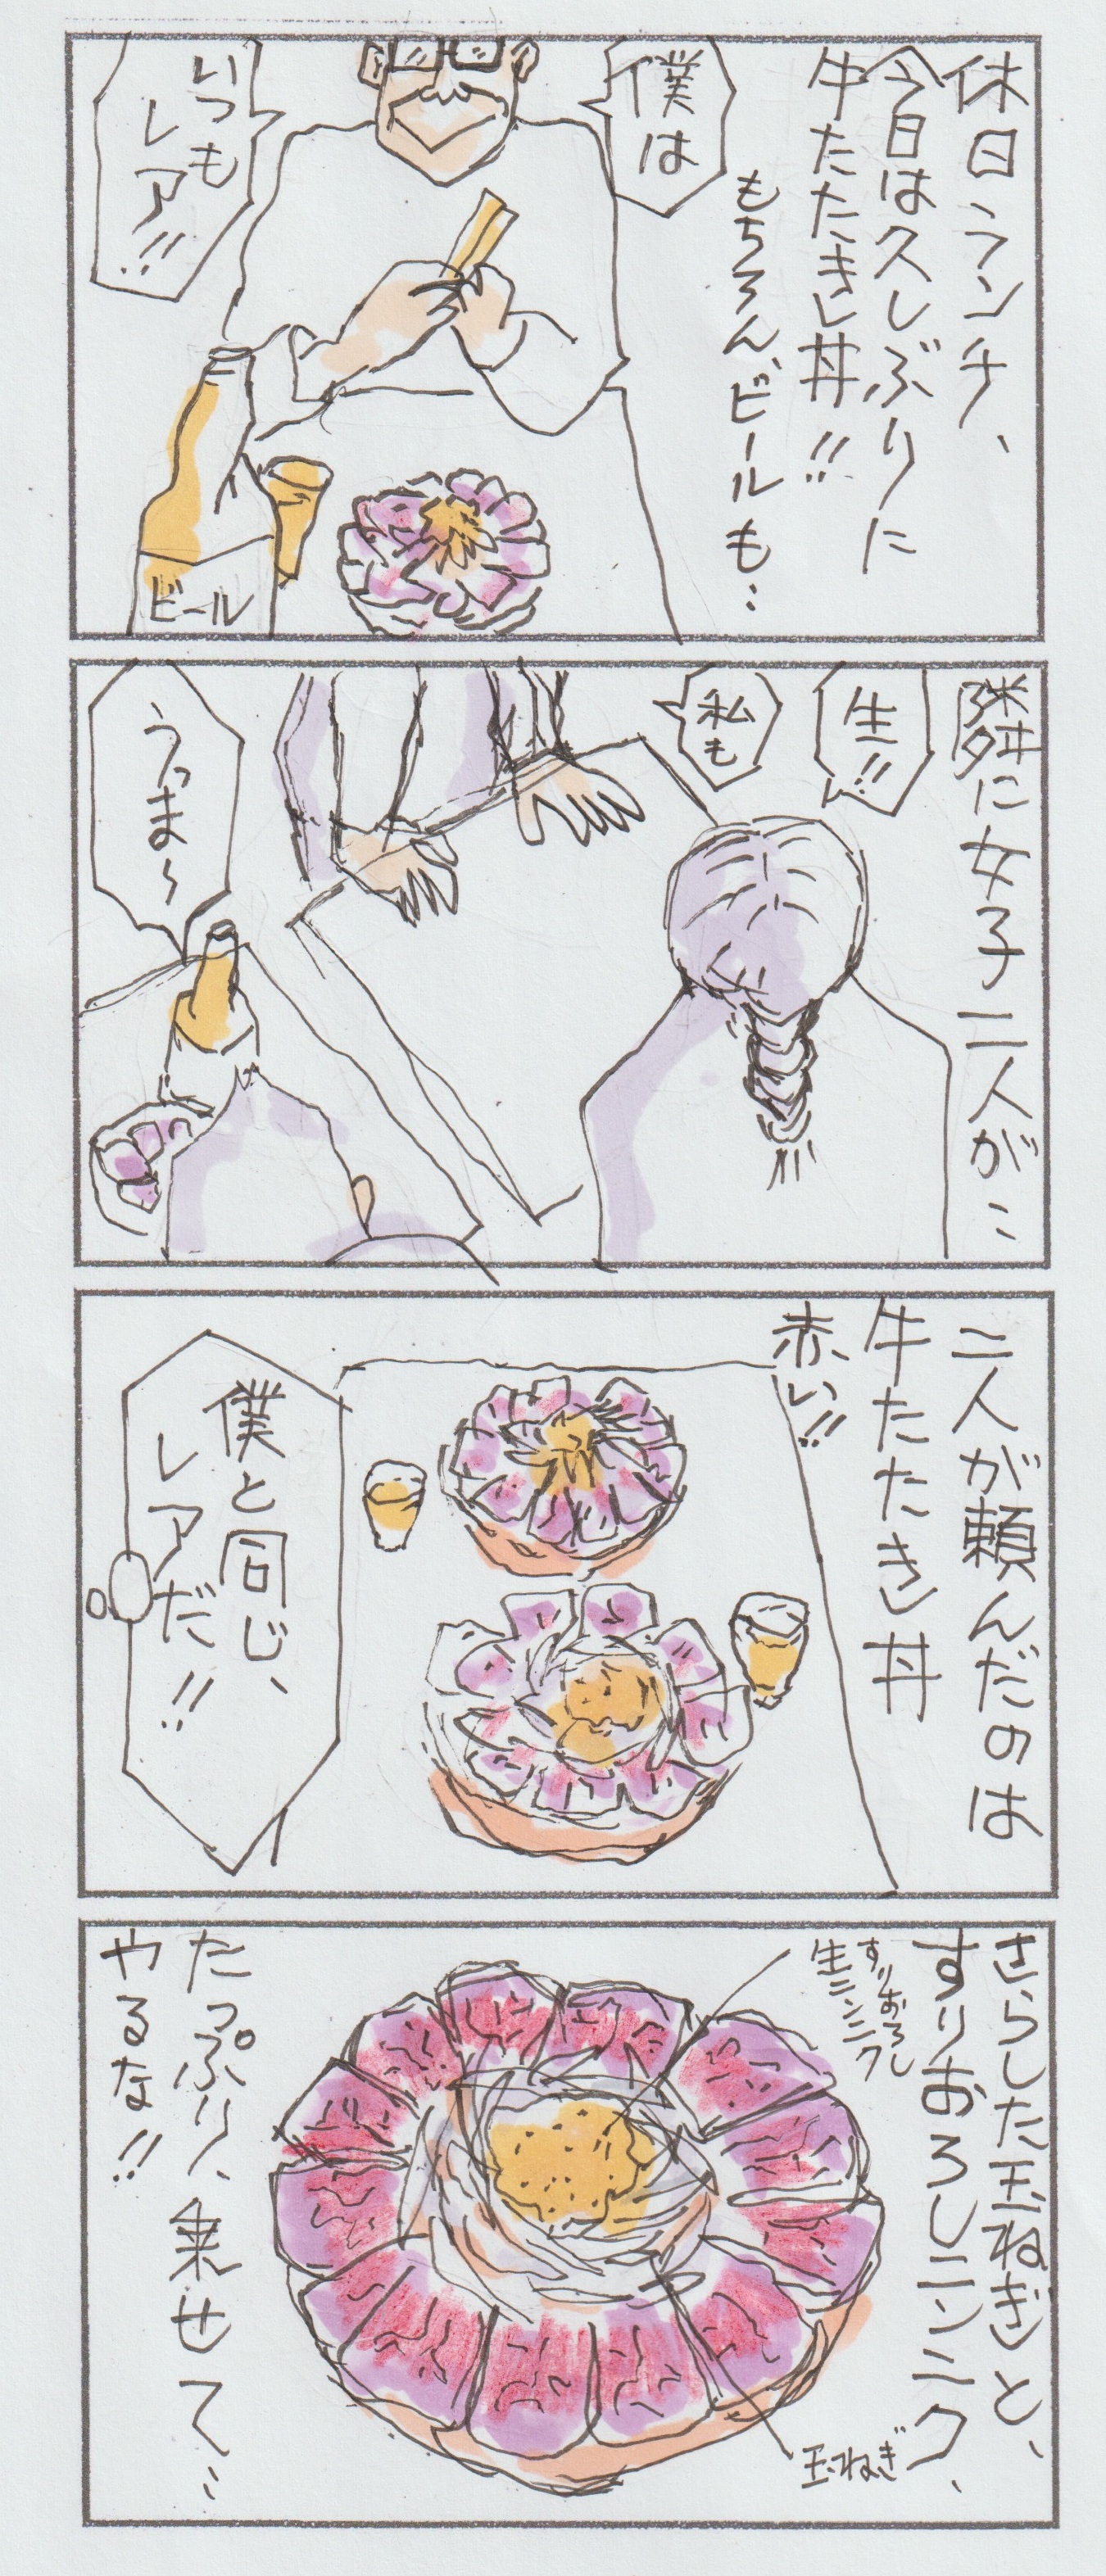 休日ランチ、
今日は久しぶりに
牛たたき丼!!
もちろん、ビールも…
僕は
いつも
レア!!
ビール
隣に女子二人が…
生!!
私も
うっま〜
二人が頼んだのは
牛たたき丼
赤い!!
僕と同じ、
レアだ!!
さらした玉ねぎと、
すりおろしニンニク、
すりおろし
生ニンニク
玉ねぎ
たっぷり、乗せて…
やるな!!